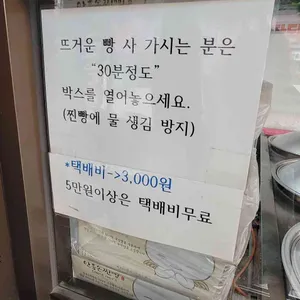 뜨거운 빵 사 가시는 분은
“30분정도”
박스를 열어놓으세요.
(찐빵에 물 생김 방지)
*택배비->3,000원
5만원이상은 택배비무료